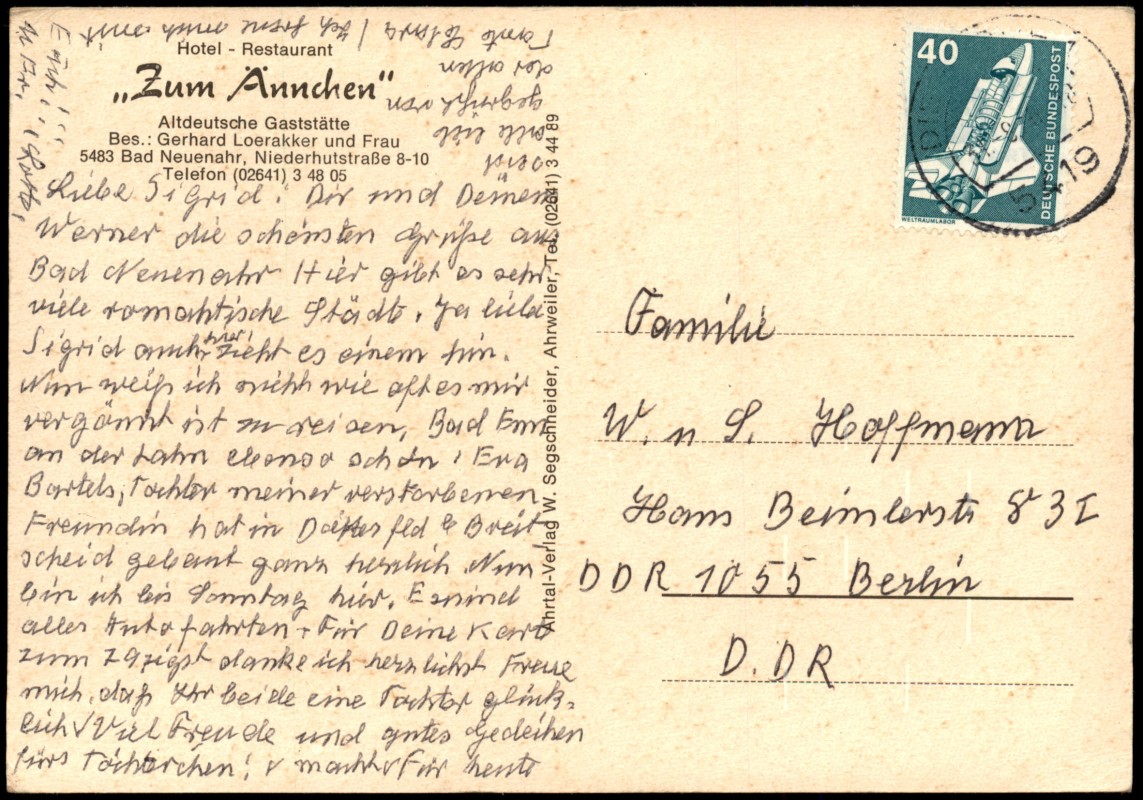 Hotel - Restaurant
„Zum Ännchen"
Altdeutsche Gaststätte
Bes.: Gerhard Loerakker und Frau
5483 Bad Neuenahr, Niederhutstraße 8-10
Telefon (02641) 3 48 05
Liebe Sigrid! Dir und Deinem
Werner die schönsten Grüße aus
Bad Neuenahr Hier gibt es sehr
viele romantische Städte. Ja liebe
Sigrid auch hier zieht es einem hin.
Nun weiß ich nicht wie oft es mir
vergönnt ist zu reisen, Bad Ems
an der Lahn ebenso schön! Eva
Bartels, Tochter meiner verstorbenen
Freundin hat in Breit
scheid gebaut ganz herzlich Nun
bin ich bis Sonntag hier. Es sind
alles Autofahrten. Für Deine Karte
zum danke ich herzlichst Freue
mich, daß Ihr beide eine Tochter glück-
lich macht Viel Freude und gutes Gedeihen
fürs Töchterchen! Für heute
seid
alle lieb
gegrüßt von
der alten
Tante
Ahrtal-Verlag W. Segschneider, Ahrweiler, Tel. (02641) 3 44 89
40
DEUTSCHE BUNDESPOST
WELTRAUMLABOR
Familie
W. u S. Hoffmann
Hans Beimlerstr 83I
DDR 1055 Berlin
D.DR